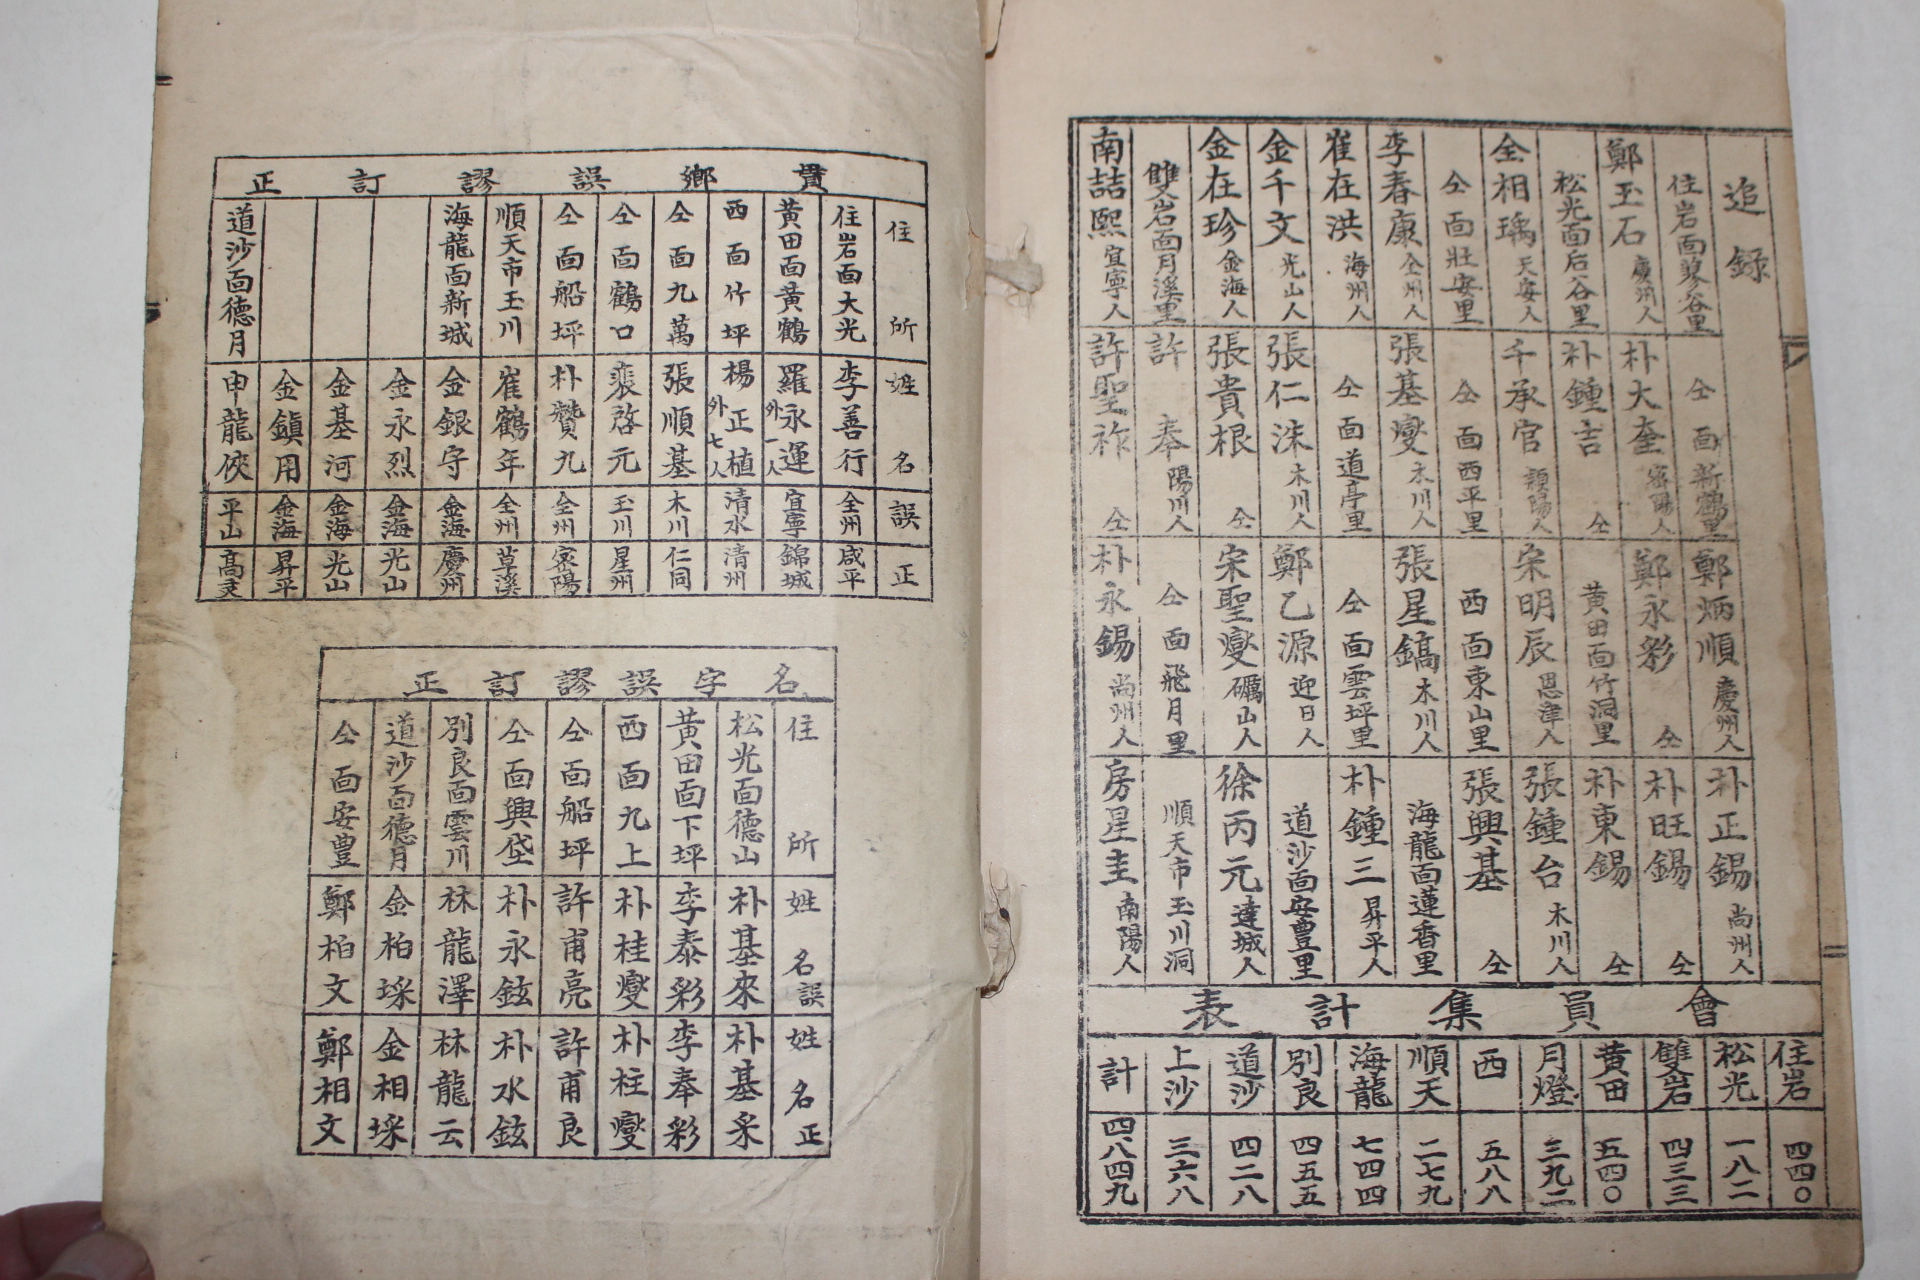 追錄
住岩面蓼谷里
鄭玉石 慶州人
松光面后谷里
全相瑀 天安人
仝面壯安里
李春康 仝州人
崔在洪 海州人
金千文 光山人
金在珍 金海人
雙岩面月溪里
南喆熙 宜寧人
仝面新鶴里
朴大奎 密陽人
朴鍾吉 仝
千承官 潁陽人
仝面西平里
張基燮 木川人
仝面道亭里
張仁洙 木川人
張貴根 仝
許奉 陽川人
許聖祚 仝
鄭炳順 慶州人
鄭永彩 仝
黃田面竹洞里
宋明辰 恩津人
西面東山里
張星鎬 木川人
仝面雲坪里
鄭乙源 迎日人
宋聖燮 礪山人
仝面飛月里
朴永錫 尙州人
朴正錫 尙州人
朴旺錫 仝
朴東錫 仝
張鍾台 木川人
張興基 仝
海龍面蓮香里
朴鍾三 昇平人
道沙面安豊里
徐丙元 達城人
順天市玉川洞
房星圭 南陽人
會員集計表
住岩 四四〇
松光 一八二
雙岩 四三三
黃田 五四〇
月燈 三九二
西 五八八
順天 二七九
海龍 七四四
別良 四五五
道沙 四二八
上沙 三六八
計 四八四九
貫鄉誤謬訂正
住所 姓名 誤 正
住岩面大光 李善行 仝州 咸平
黃田面黃鶴 羅永運 外一人 宜寧 錦城
西面竹坪 楊正植 外七人 清水 清州
仝面九萬 張順基 木川 仁同
仝面鶴口 裵啓元 玉川 星州
仝面船坪 朴贊九 仝州 密陽
順天市玉川 崔鶴年 仝州 草溪
海龍面新城 金銀守 金海 慶州
金永烈 金海 光山
金基河 金海 光山
金鎭用 金海 昇平
道沙面德月 申龍俠 平山 高灵
名字誤謬訂正
住所 姓名誤 姓名正
松光面德山 朴基來 朴基采
黃田面下坪 李泰彩 李奉彩
西面九上 朴桂燮 朴柱燮
仝面船坪 許甫亮 許甫良
仝面興垈 朴永鉉 朴水鉉
別良面雲川 林龍澤 林龍云
道沙面德月 金柏埰 金相埰
仝面安豊 鄭柏文 鄭相文